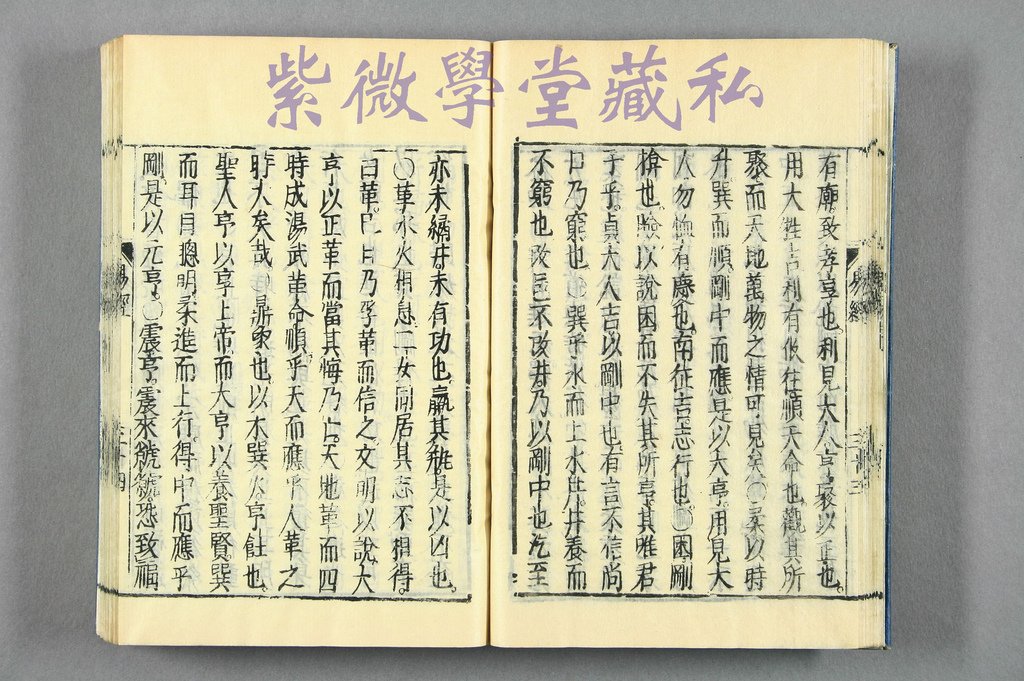 紫微學堂藏私
易經
三十三
有廟致孝享也。利見大人亨聚以正也。
用大牲吉利有攸往順天命也。觀其所
聚而天地萬物之情可見矣○柔以時
升。巽而順剛中而應是以大亨。用見大
人勿恤有慶也。南征吉志行也。○困剛
揜也。險以說困而不失其所亨。其唯君
子乎。貞大人吉以剛中也。有言不信尚
口乃窮也○巽乎水而上水井。井養而
不窮也改邑不改井。乃以剛中也。汔至
亦未繘井。未有功也。羸其瓶。是以凶也。
○革水火相息二女同居其志不相得。
曰革。巳日乃孚革而信之文明以說大
亨以正革而當其悔乃亡。天地革而四
時成湯武革命順乎天而應乎人革之
時大矣哉○鼎象也。以木巽火亨飪也。
聖人亨以享上帝。而大亨以養聖賢。巽
而耳目聰明柔進而上行。得中而應乎
剛。是以元亨。○震亨。震來虩虩。恐致福
易經
三十四